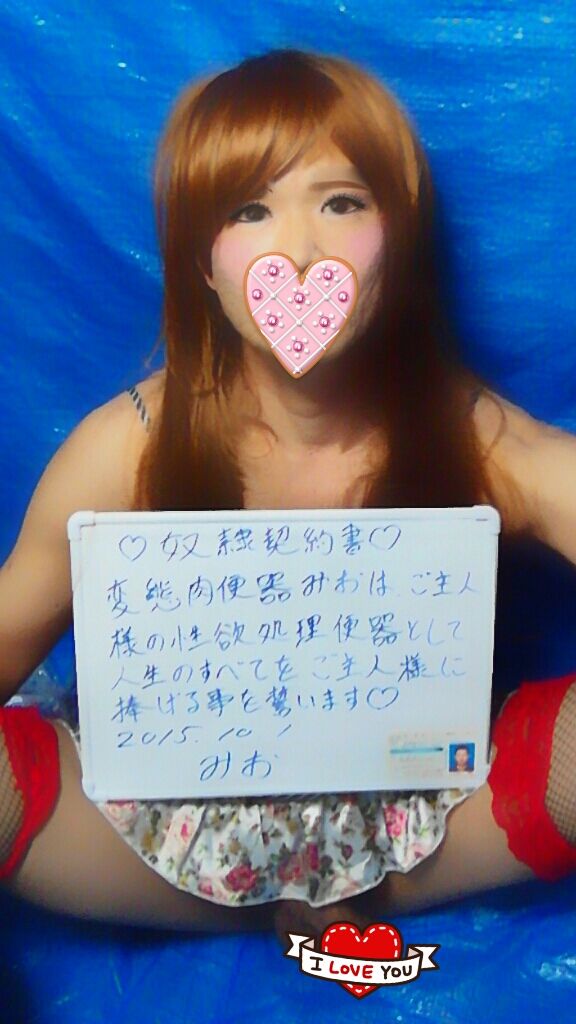 ♡奴隷契約書♡
変態肉便器みおは、ご主人
様の性欲処理便器として
人生のすべてをご主人様に
捧げる事を誓います♡
2015.10 1
みお
I LOVE YOU